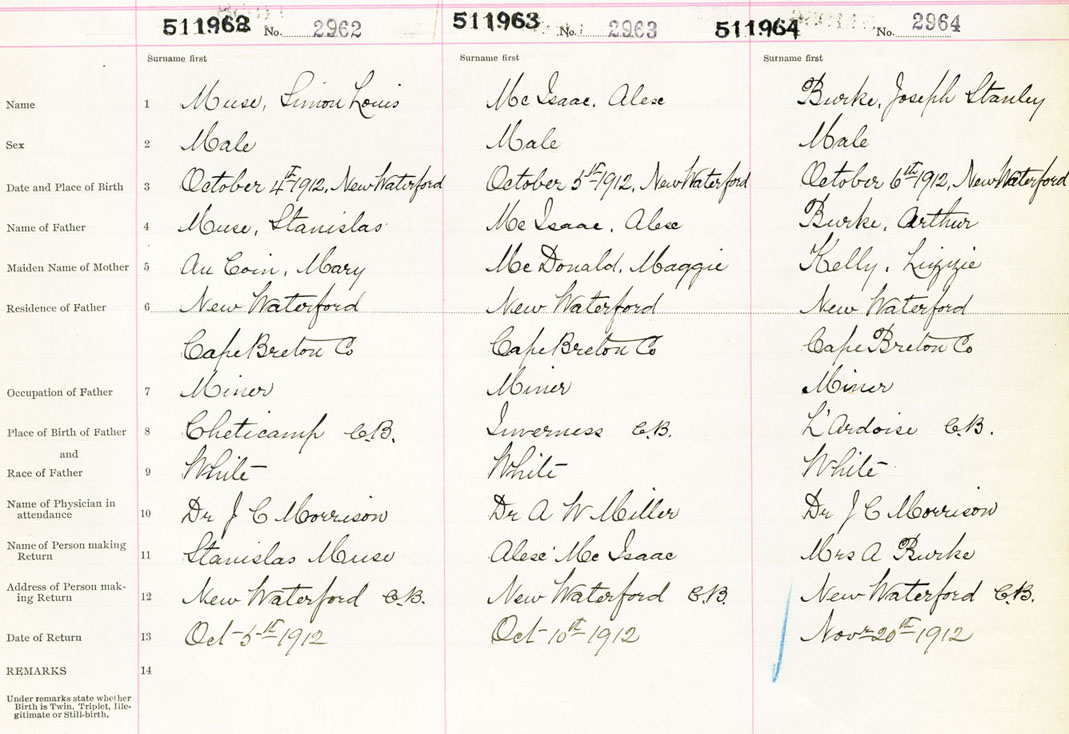 511962 No. 2962 511963 No. 2963 511964 No. 2964
Surname first Surname first Surname first
Name 1 Muse, Simon Louis Mc Isaac, Alex Burke, Joseph Stanley
Sex 2 Male Male Male
Date and Place of Birth 3 October 4th 1912, New Waterford October 5th 1912, New Waterford October 6th 1912, New Waterford
Name of Father 4 Muse, Stanislas Mc Isaac, Alex Burke, Arthur
Maiden Name of Mother 5 Au Coin, Mary Mc Donald, Maggie Kelly, Lizzie
Residence of Father 6 New Waterford New Waterford New Waterford
Cape Breton Co Cape Breton Co Cape Breton Co
Occupation of Father 7 Miner Miner Miner
Place of Birth of Father 8 Cheticamp C.B. Inverness C.B. L'Ardoise C.B.
and
Race of Father 9 White White White
Name of Physician in
attendance 10 Dr J C Morrison Dr A W Miller Dr J C Morrison
Name of Person making
Return 11 Stanislas Muse Alex Mc Isaac Mrs A Burke
Address of Person mak-
ing Return 12 New Waterford C.B. New Waterford C.B. New Waterford C.B.
Date of Return 13 Oct 5th 1912 Oct 10th 1912 Novr 20th 1912
REMARKS 14
Under remarks state whether
Birth is Twin, Triplet, Ille-
gitimate or Still-birth.